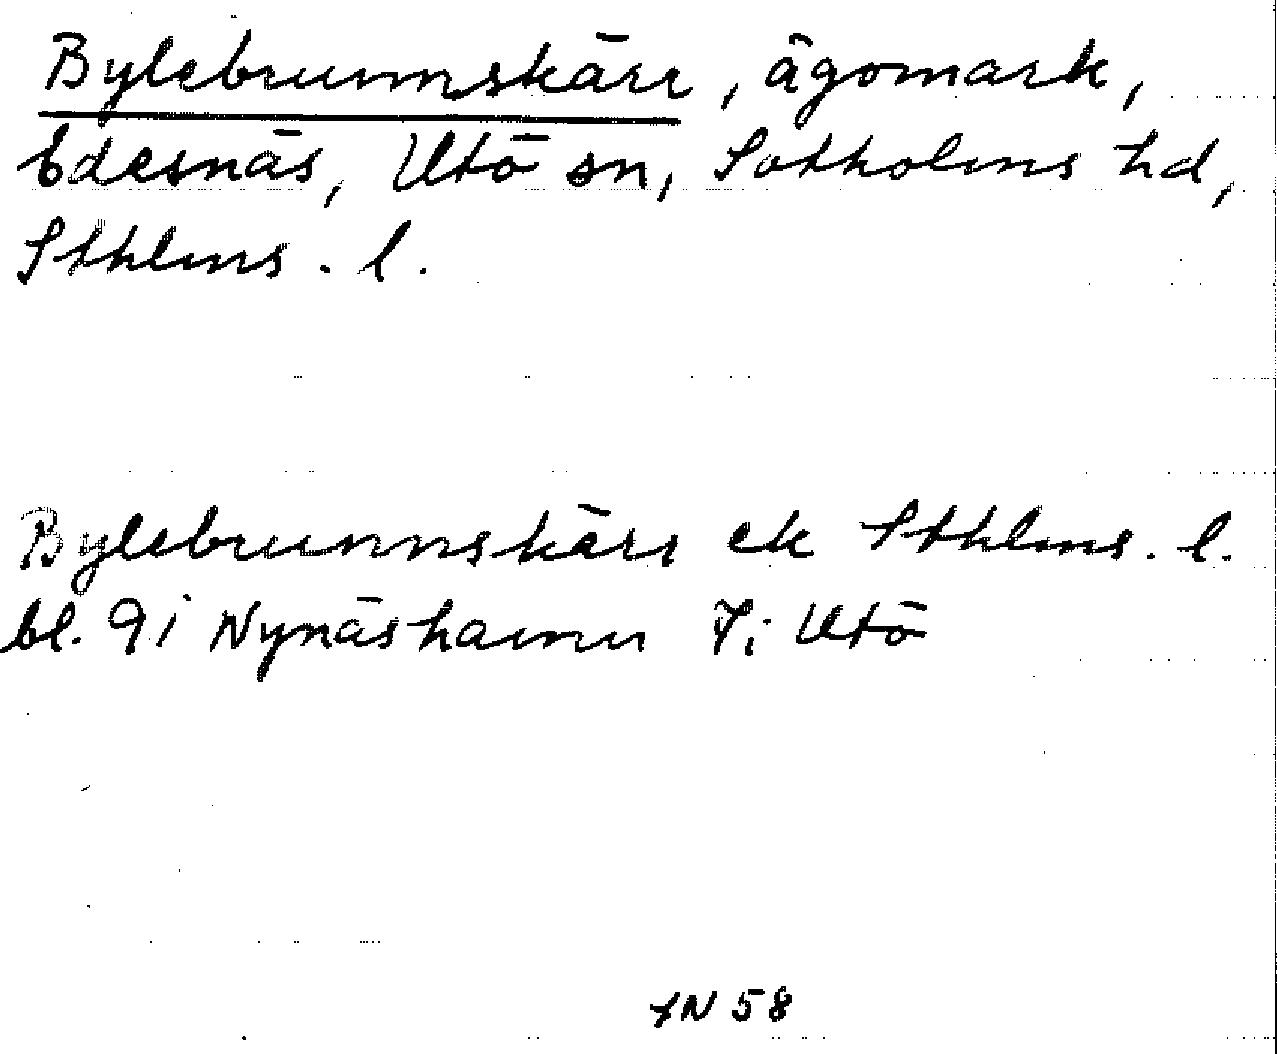 Bylebrunnskärr, ägomark,
Edesnäs, Utö sn, Sotholms hd,
Sthlms. l.
Bylebrunnskärr ek Sthlms. l.
bl. 91 Nynäshamn 7; Utö
YN 58